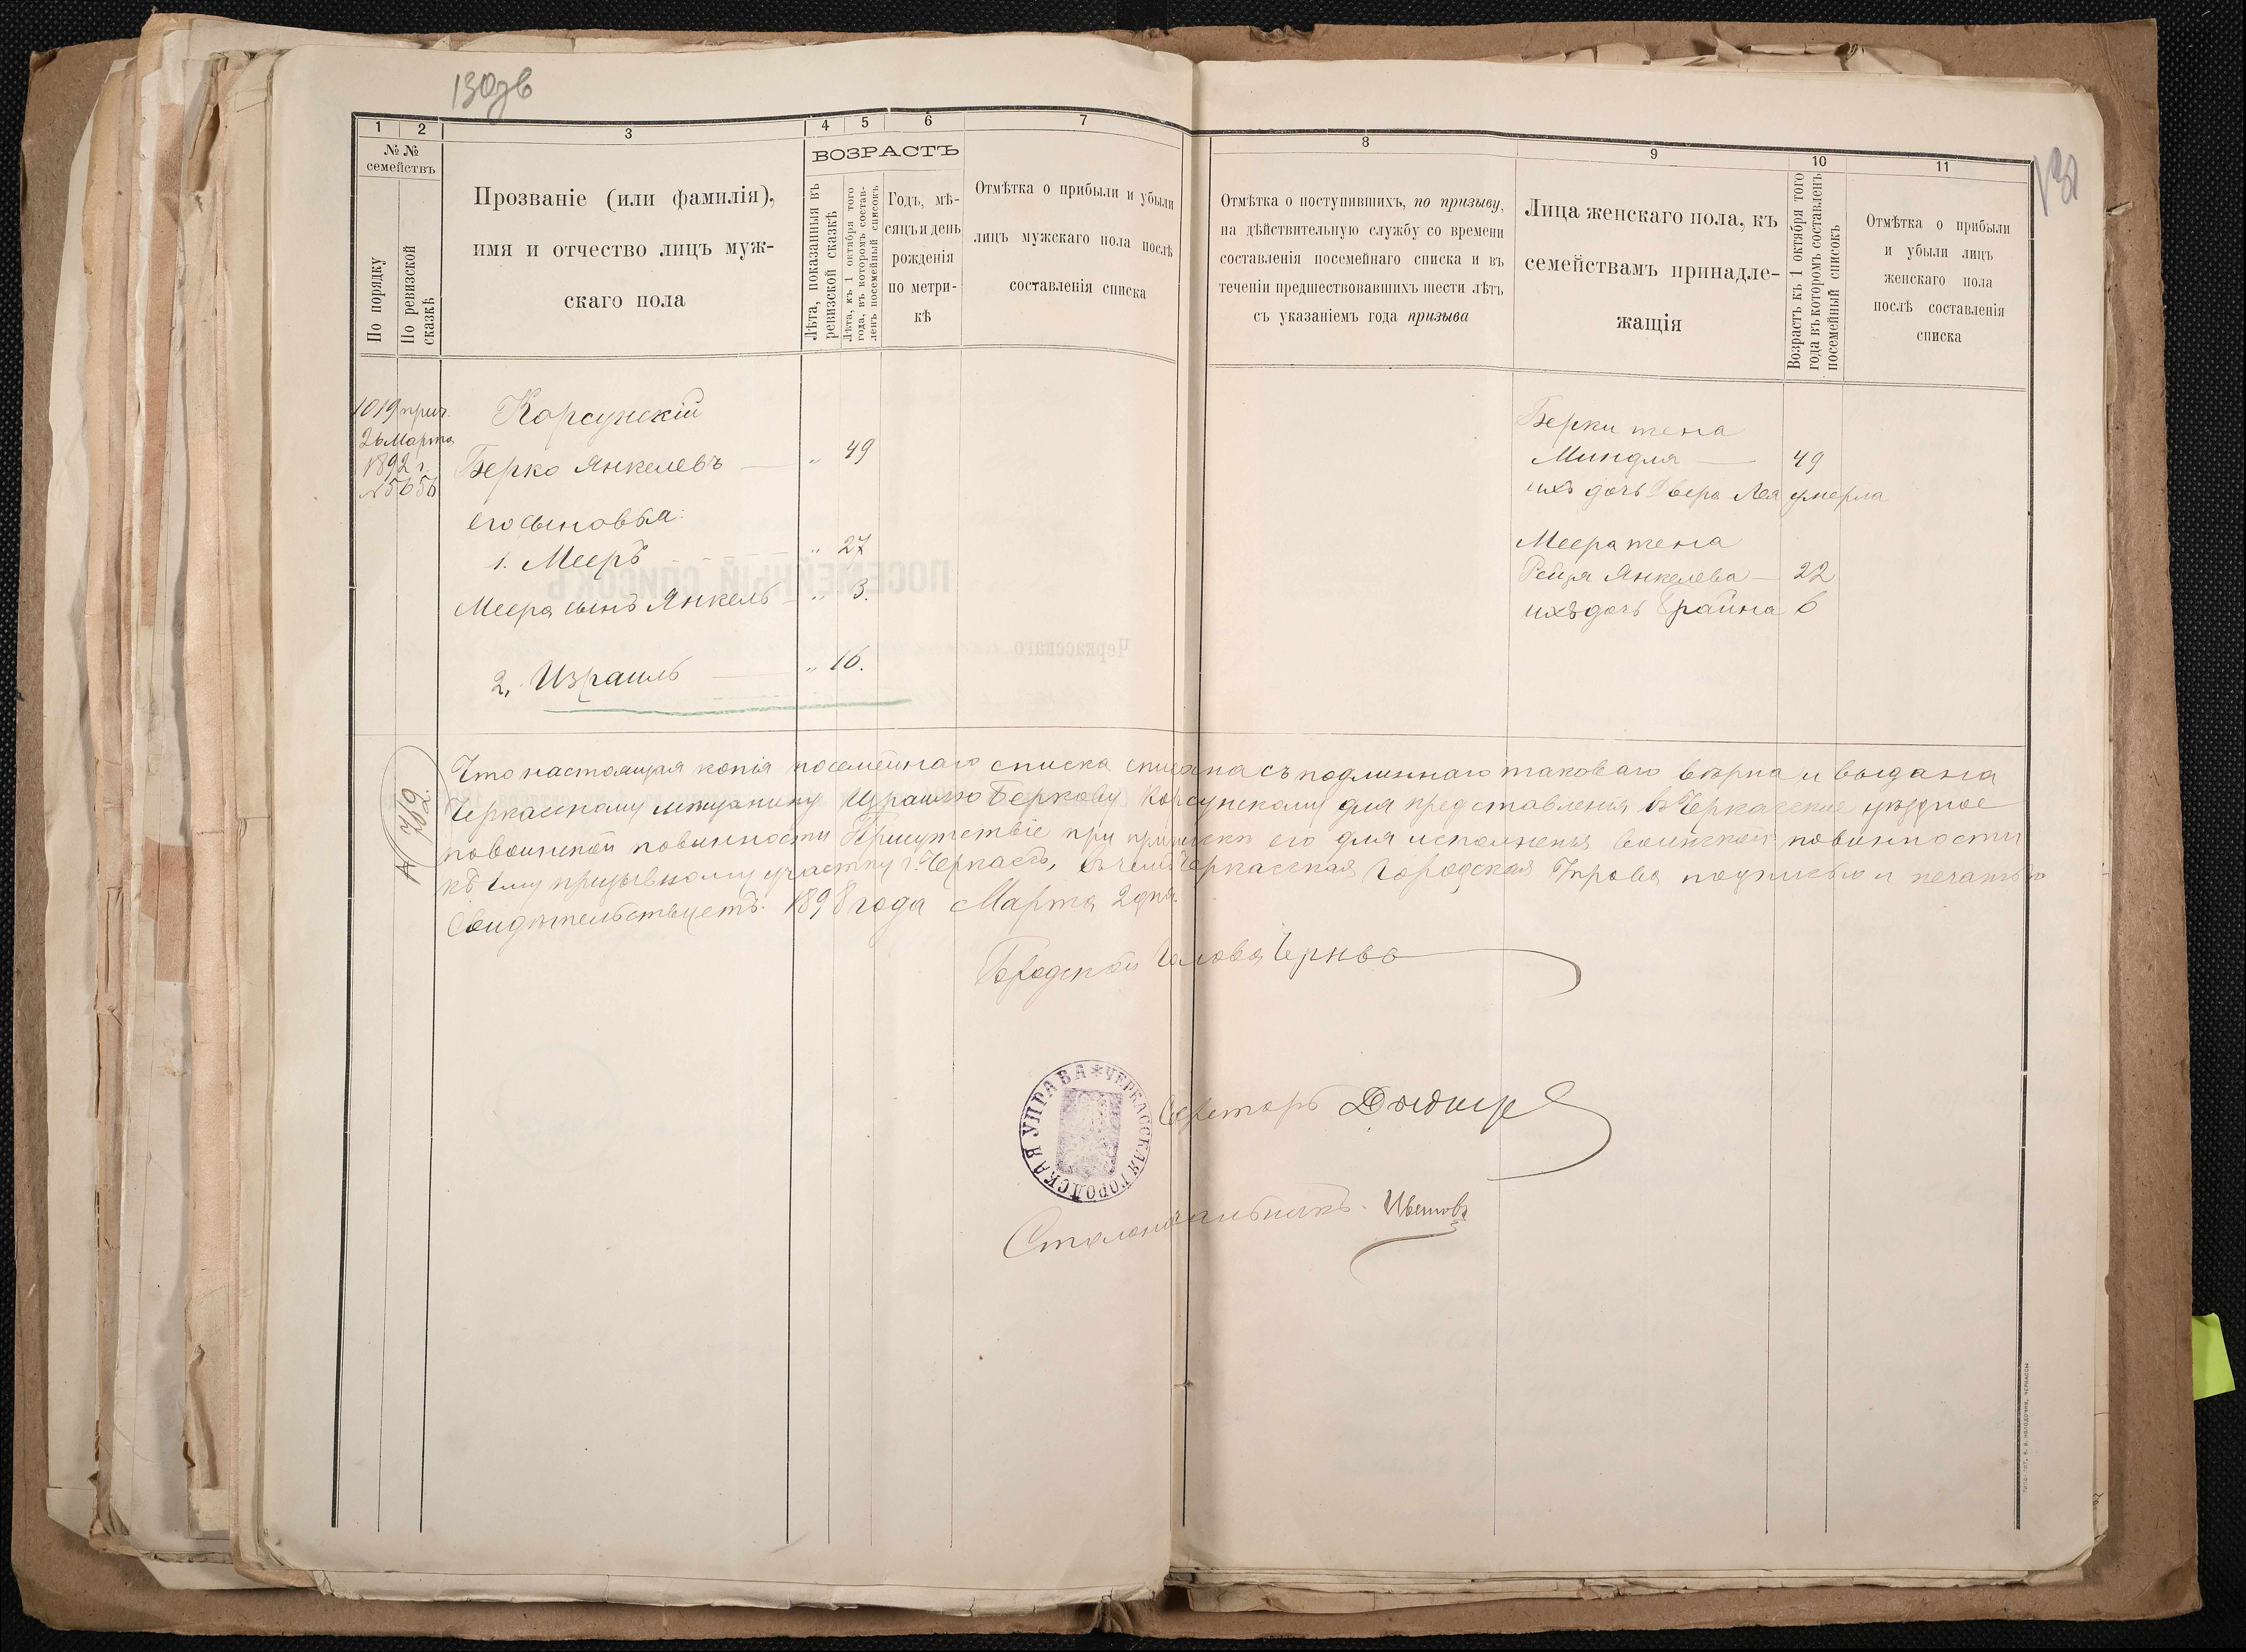 130зв
131
1 2 3 4 5 6 7 8 9 10 11
№ №
семействъ
По порядку
По ревизской
сказкѣ
Прозваніе (или фамилія),
имя и отчество лицъ муж-
скаго пола
ВОЗРАСТЪ
Лѣта, показанныя въ
ревизской сказкѣ
Лѣта, къ 1 октября того
года, въ которомъ состав-
ленъ посемейный списокъ
Годъ, мѣ-
сяцъ и день
рожденія
по метри-
кѣ
Отмѣтка о прибыли и убыли
лицъ мужскаго пола послѣ
составленія списка
Отмѣтка о поступившихъ, по призыву,
на дѣйствительную службу со времени
составленія посемейнаго списка и въ
теченіи предшествовавшихъ шести лѣтъ
съ указаніемъ года призыва
Лица женскаго пола, къ
семействамъ принадле-
жащія
Возрастъ къ 1 октября того
года въ которомъ составленъ
посемейный списокъ
Отмѣтка о прибыли
и убыли лицъ
женскаго пола
послѣ составленія
списка
1019 прич.
26 Марта
1892 г.
№ 5656
Корсунскій
Берко Янкелевъ — „ 49
его сыновья:
1. Мееръ — „ 27
Меера сынъ Янкель — „ 3.
2, Израиль — „ 16.
Берки жена
Миндля — 49
ихъ дочь Двера Лея умерла
Меера жена
Рейзя Янкелева — 22
ихъ дочь Фрайна 6
№ 712.
Что настоящая копія посемейнаго списка списана съ подлиннаго таковаго вѣрна и выдана
Черкасскому мѣщанину Израилю Беркову Корсунскому для представленія въ Черкасское уѣздное
по воинской повинности Присутствіе при припискѣ его для исполненія воинской повинности
къ 1му призывному участку г. Черкасъ, въ чемъ Черкасская Городская Управа подписью и печатью
Свидѣтельствуетъ. 1898 года Марта 2 дня.
Городской Голова
Секретарь
Столоначальникъ. Цвѣтовъ
ЧЕРКАССКАЯ ГОРОДСКАЯ УПРАВА